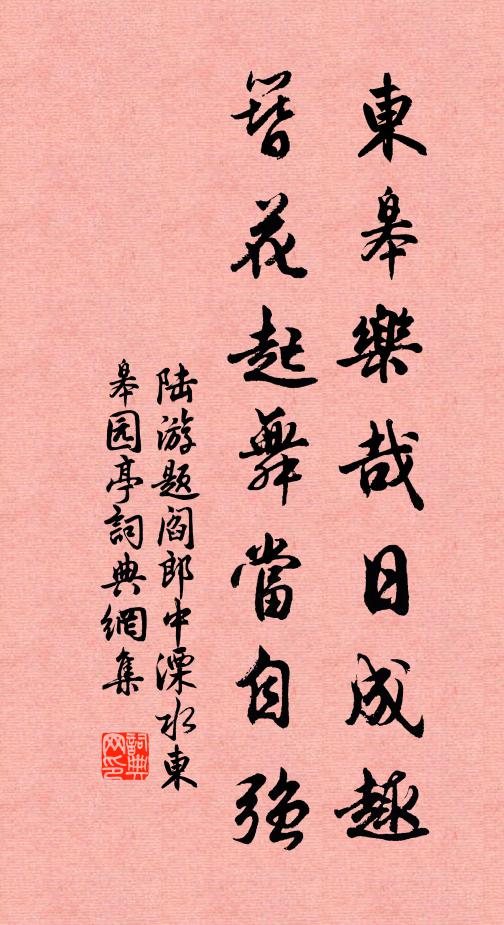 東皋樂哉日成趣
簪花起舞當自強
陆游题阎郎中溧水東
皋园亭詞典網集
詞典
网印